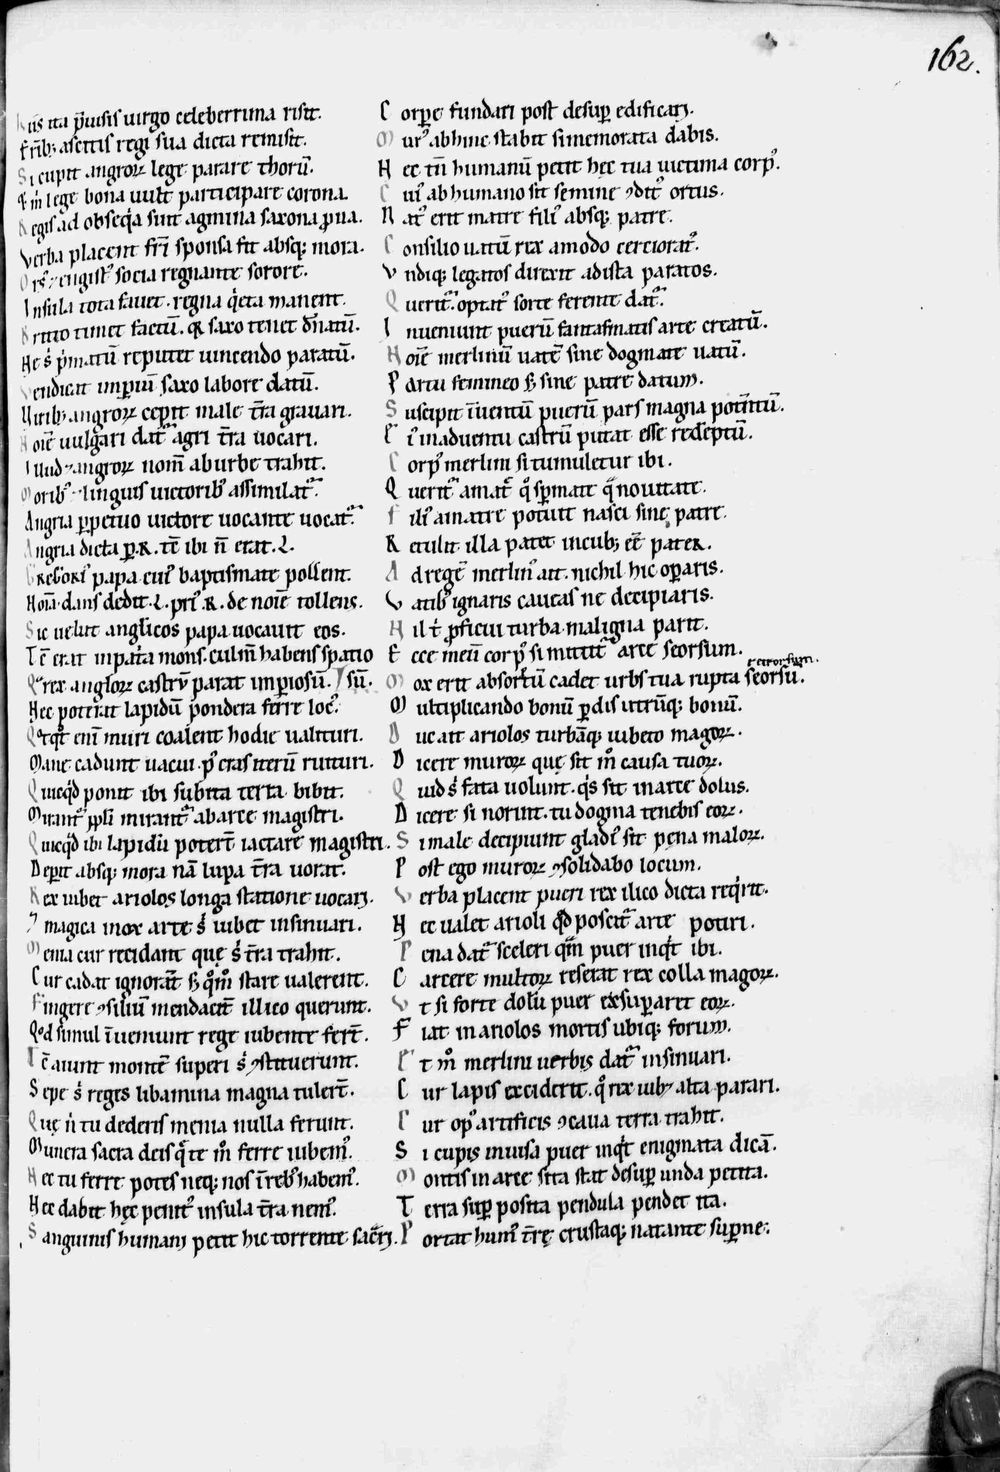 162.
His ita p̄uisis uirgo celeberrima risit.
Fr̄ib; asettis regi sua dicta remisit.
Si cupit angroꝝ lege parare thorū.
lege bona uult participare corona.
Regis ad obseq̄a sunt agmina saxona pͥua.
Verba placent fr̄i sponsa fit absq; mora.
Orsꝰ ⁊ engistꝰ socia regnante sorore.
Insula tota fauet. regna q̇eta manent.
Britto timet factū. qͥ saxo tenet dn̄atū.
He s; pͥmatū reputet uincendo paratū.
Vendicat impiū saxo labore datū.
Virib; angroꝝ cepit male t̄ra grauari.
Noīe uulgari dat᷑ agri t̄ra uocari.
Illud ⁊ angroꝝ nom̄ ab urbe trahit.
Moribꝰ ⁊ linguis uictoribꝰ assimilat᷑.
Angria ꝑpetuo uictore uocante uocat᷑.
Angria dicta ꝑ .R. tē ibi n̄ erat .L.
Gregoriꝰ papa cuiꝰ baptismate pollent.
Noīa dans dedit .L. priꝰ .R. de noīe tollens.
Sic uelut anglicos papa uocauit eos.
Tc̄ erat in pat̄a mons. culm̄ habens spatio
Qͦ rex angloꝝ castrū parat imperiosū. / sū.
Hec poterat lapidū pondera ferre locꝰ.
Qͦtqͦt enī muri coalent hodie ualituri.
Mane cadunt uacui. pꝰ cras iterū ruituri.
Quicq̇d ponit ibi subita terra bibit.
Mirant᷑ ip̄si mirant᷑ ab arce magistri.
Quicq̇d ibi lapidū potert̄ iactare magistri.
Deperit absq; mora nā lupa t̄ra uorat.
Rex iubet ariolos longa statione uocari.
⁊ magica mox arte sͥ iubet insinuari.
Menia cur recidant quę sͥ t̄ra trahit.
Cur cadat ignorat̄ s; qͦmͦ stare ualerent.
Fingere ꝯsiliū mendacit̄ illico querunt.
Qͦd simul īueniunt rege iubente fert̄.
Tc̄ aiunt montē superi sͥ ꝯstituerunt.
Sepe sͥ reges libamina magna tulert̄.
Quę ni tu dederis menia nulla ferunt.
Munera sacra deis q̄ te mͦ ferre iubemꝰ.
Nec tu ferre potes neq; nos ī rebꝰ habemꝰ.
Nec dabit hęc penitꝰ insula t̄ra nemꝰ.
Sanguinis humani petit hic torrente sacͬri.
Corpore fundari post desuꝑ edificari.
Murꝰ abhinc stabit si memorata dabis.
Hec tn̄ humanū petit hec tua uictima corpꝰ.
Cuiꝰ ab humano sit semine ꝯditꝰ ortus.
Natꝰ erit matre filiꝰ absq; patre.
Consilio uatū rex amodo cerciorat᷑.
Vndiq; legatos direxit ad ista paratos.
Querit᷑. optatꝰ sorte ferente dat᷑.
Inueniunt puerū fantasmatis arte creatū.
Noīe merlinū uatē sine dogmate uatū.
Partu femineo s; sine patre datum.
Suscipit īuentū puerū pars magna potentū.
Et ī in aduentu castrū putat esse redeptū.
Corpꝰ merlini si tumuletur ibi.
Querit᷑ a mat̄ qͦ spermate q̄ nouitate.
Filiꝰ a matre potuit nasci sine patre.
Retulit illa patet incub; eē pater.
Ad regē merlinꝰ ait. nichil hic operaris.
Vatibꝰ ignaris caueas ne decipiaris.
Nil t̄ ꝓficui turba maligna parit.
Ecce meū corpꝰ si mittit᷑ arte seorsum.
retrorsum.
Mox erit absortū cadet urbs tua rupta seorsū.
Multiplicando bonū ꝑdis utrūq; bonū.
Duc ait ariolos turbāq; iubeto magoꝝ.
Dicere muroꝝ quę sit mͦ causa tuoꝝ.
Quid sͥ fata uolunt. q̇s sit in arte dolus.
Dicere si norint. tu dogma tenebis eoꝝ.
Si male decipiunt gladiꝰ sit pęna maloꝝ.
Post ego muroꝝ ꝯsolidabo locum.
Verba placent pueri rex ilico dicta req̇rit.
Nec ualet arioli qͦd poscit᷑ arte potiri.
Pena dat᷑ sceleri qm̄ puer inqͥt ibi.
Carcere multoꝝ reserat rex colla magoꝝ.
Vt si forte dolū puer exsuperaret eoꝝ.
Fiat in ariolos mortis ubiq; forum.
Et mͦ merlini uerbis dat᷑ insinuari.
Cur lapis exciderit. qͦ rex iub; alta parari.
Cur opꝰ artificis ꝯcaua terra trahit.
Si cupis inuisa puer inqͥt enigmata dicā.
Montis in arce sita stat desuꝑ unda petita.
Terra suꝑ posita pendula pendet ita.
Portat humꝰ t̄rę crustaq; natante superne.